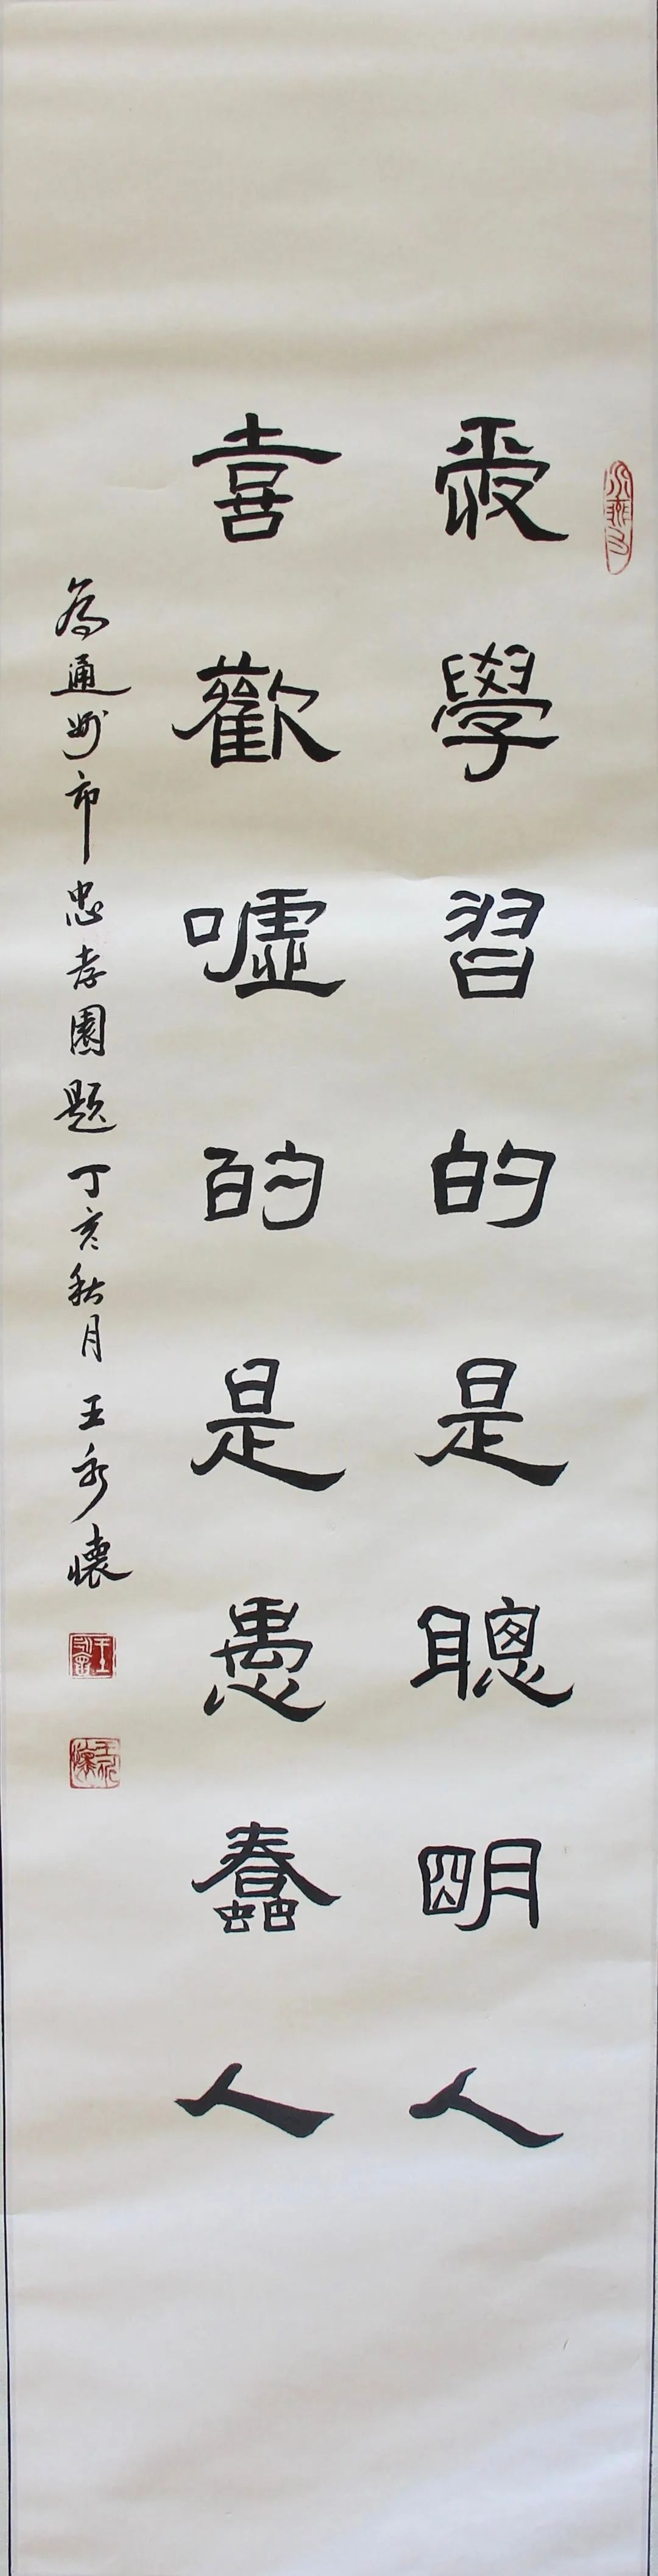 愛學習的是聰明人
喜歡噓的是愚蠢人
為通州市忠孝園題丁亥秋月王永懷